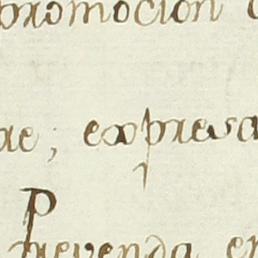 promocion
ae; expresa
P
prevenda en